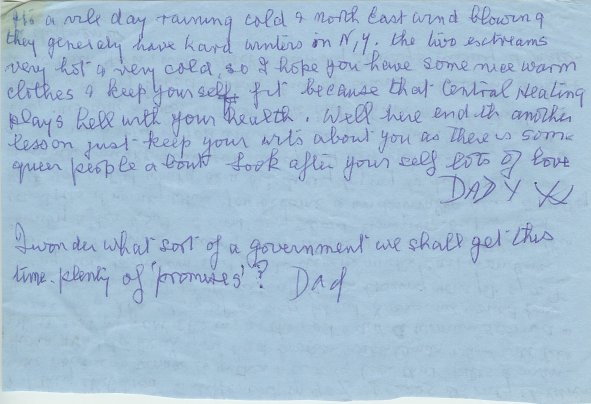 its a vile day raining cold & north East wind blowing
they generaly have hard winters in N,Y. the two extreams
very hot & very cold, so I hope you have some nice warm
clothes & keep yourself fit because that Central Heating
plays hell with your health. Well here endith another
lesson just keep your wits about you as there is some
queer people about Look after your self lots of love
DADY XX
I wonder what sort of a government we shall get this
time. plenty of 'promises'? Dad